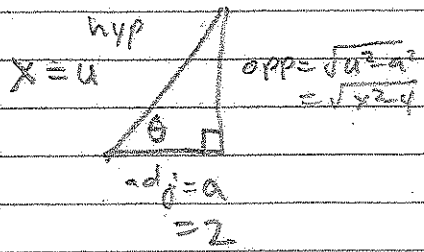 hyp
x = u
opp = √(u²-a²)
= √(x²-4)
θ
adj = a
= 2